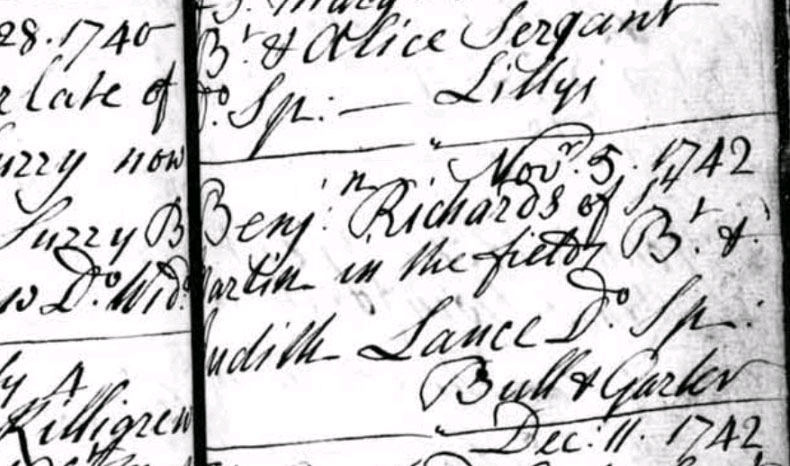 28. 1740
r late of
urry now
Surry B
Do. Wid.
Killigrew
Br. & Alice Sergant
Do. Sp: — Lillys
Novr. 5. 1742
Benjn. Richards of St
artin in the fields Br. &
udith Lance Do. Sp.
Bull & Garter
Dec: 11. 1742